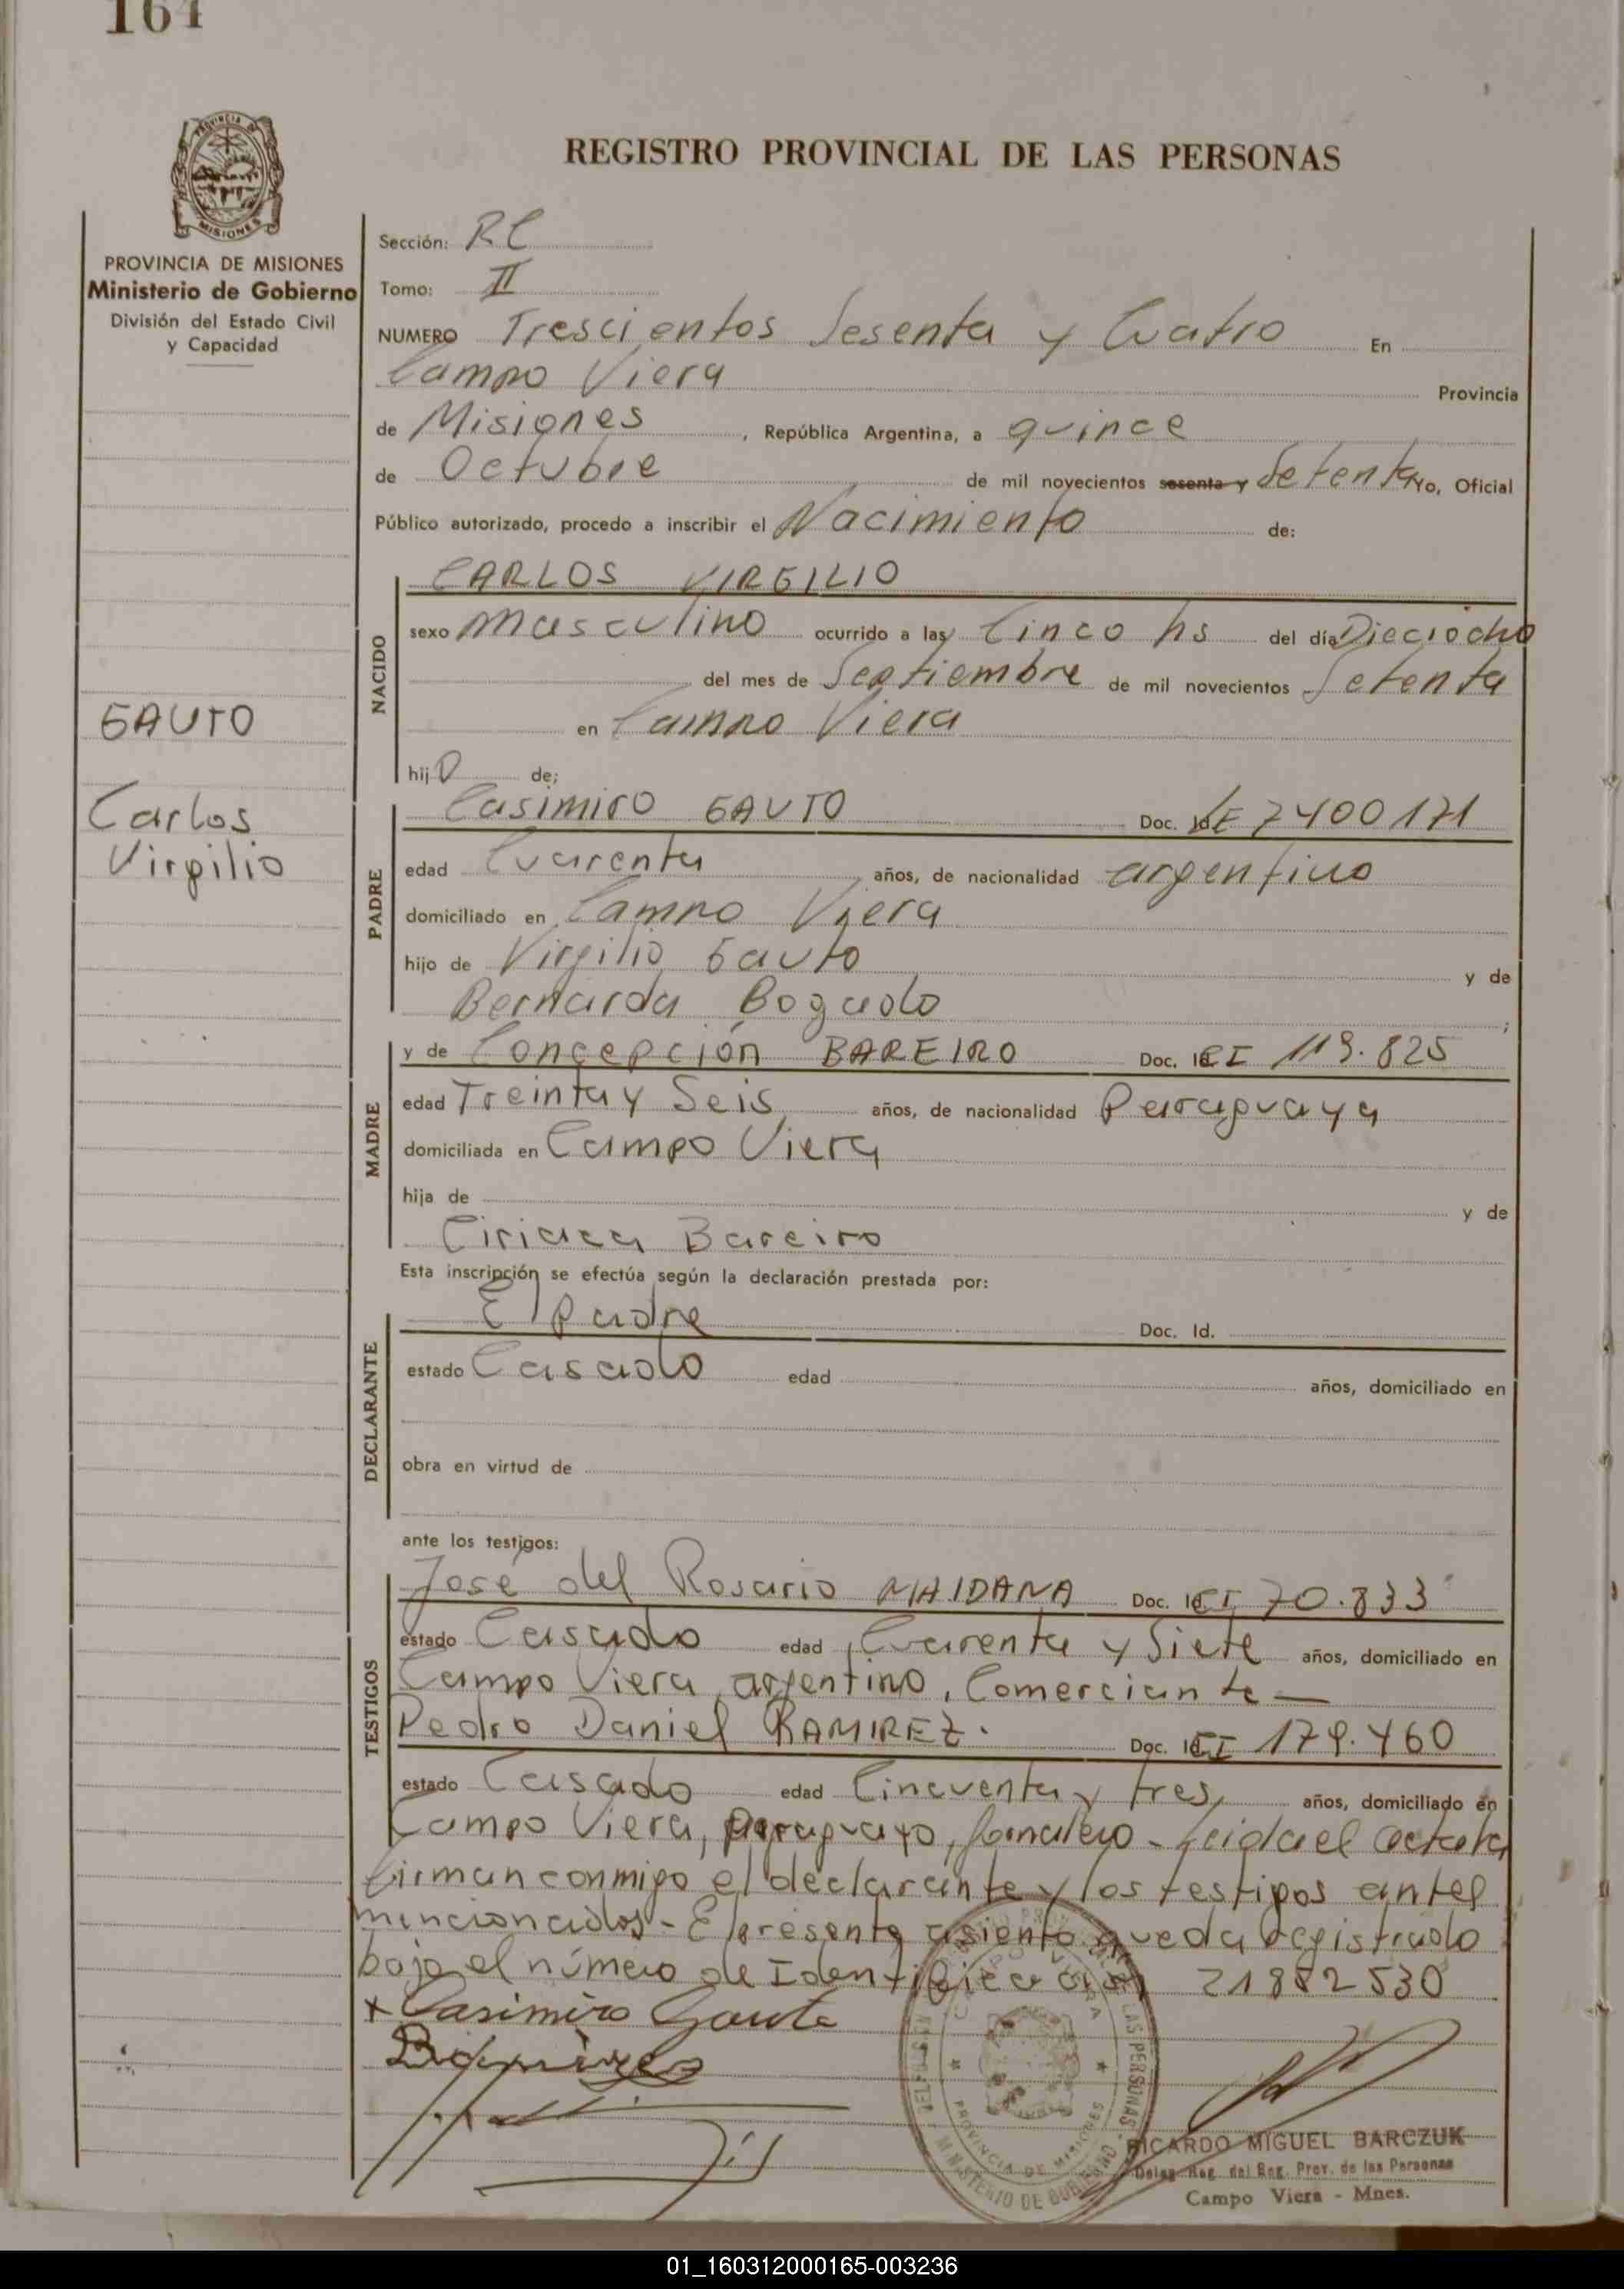 164
REGISTRO PROVINCIAL DE LAS PERSONAS
PROVINCIA DE MISIONES
Ministerio de Gobierno
División del Estado Civil
y Capacidad
Sección: RC
Tomo: II
NUMERO Trescientos Sesenta y Cuatro En
Campo Viera Provincia
de Misiones, República Argentina, a quince
de Octubre de mil novecientos sesenta y Setenta Yo, Oficial
Público autorizado, procedo a inscribir el Nacimiento de:
NACIDO
CARLOS VIRGILIO
sexo Masculino ocurrido a las Cinco hs del día Dieciocho
del mes de Septiembre de mil novecientos Setenta
en Campo Viera
hijo de:
GAUTO
Carlos
Virgilio
PADRE
Casimiro GAUTO Doc. Id. LE 7400171
edad Cuarenta años, de nacionalidad argentino
domiciliado en Campo Viera
hijo de Virgilio Gauto y de
Bernarda Bogado ;
MADRE
y de Concepción BAREIRO Doc. Id. CI 119.825
edad Treinta y Seis años, de nacionalidad Paraguaya
domiciliada en Campo Viera
hija de y de
Ciriaca Bareiro
Esta inscripción se efectúa según la declaración prestada por:
DECLARANTE
El Padre Doc. Id.
estado Casado edad años, domiciliado en
obra en virtud de
ante los testigos:
TESTIGOS
José del Rosario MAIDANA Doc. Id. CI 70.833
estado Casado edad Cuarenta y Siete años, domiciliado en
Campo Viera, argentino, Comerciante —
Pedro Daniel RAMIREZ. Doc. Id. CI 179.460
estado Casado edad Cincuenta y tres, años, domiciliado en
Campo Viera, paraguayo, Jornalero - Leida el acta la
firman conmigo el declarante y los testigos antes
mencionados - El presente asiento queda registrado
bajo el número de Identificación 21882530
x Casimiro Gauto
RICARDO MIGUEL BARCZUK
Deleg. Reg. del Reg. Prov. de las Personas
Campo Viera - Mnes.
PROVINCIA DE MISIONES
MINISTERIO DE GOBIERNO
01_160312000165-003236